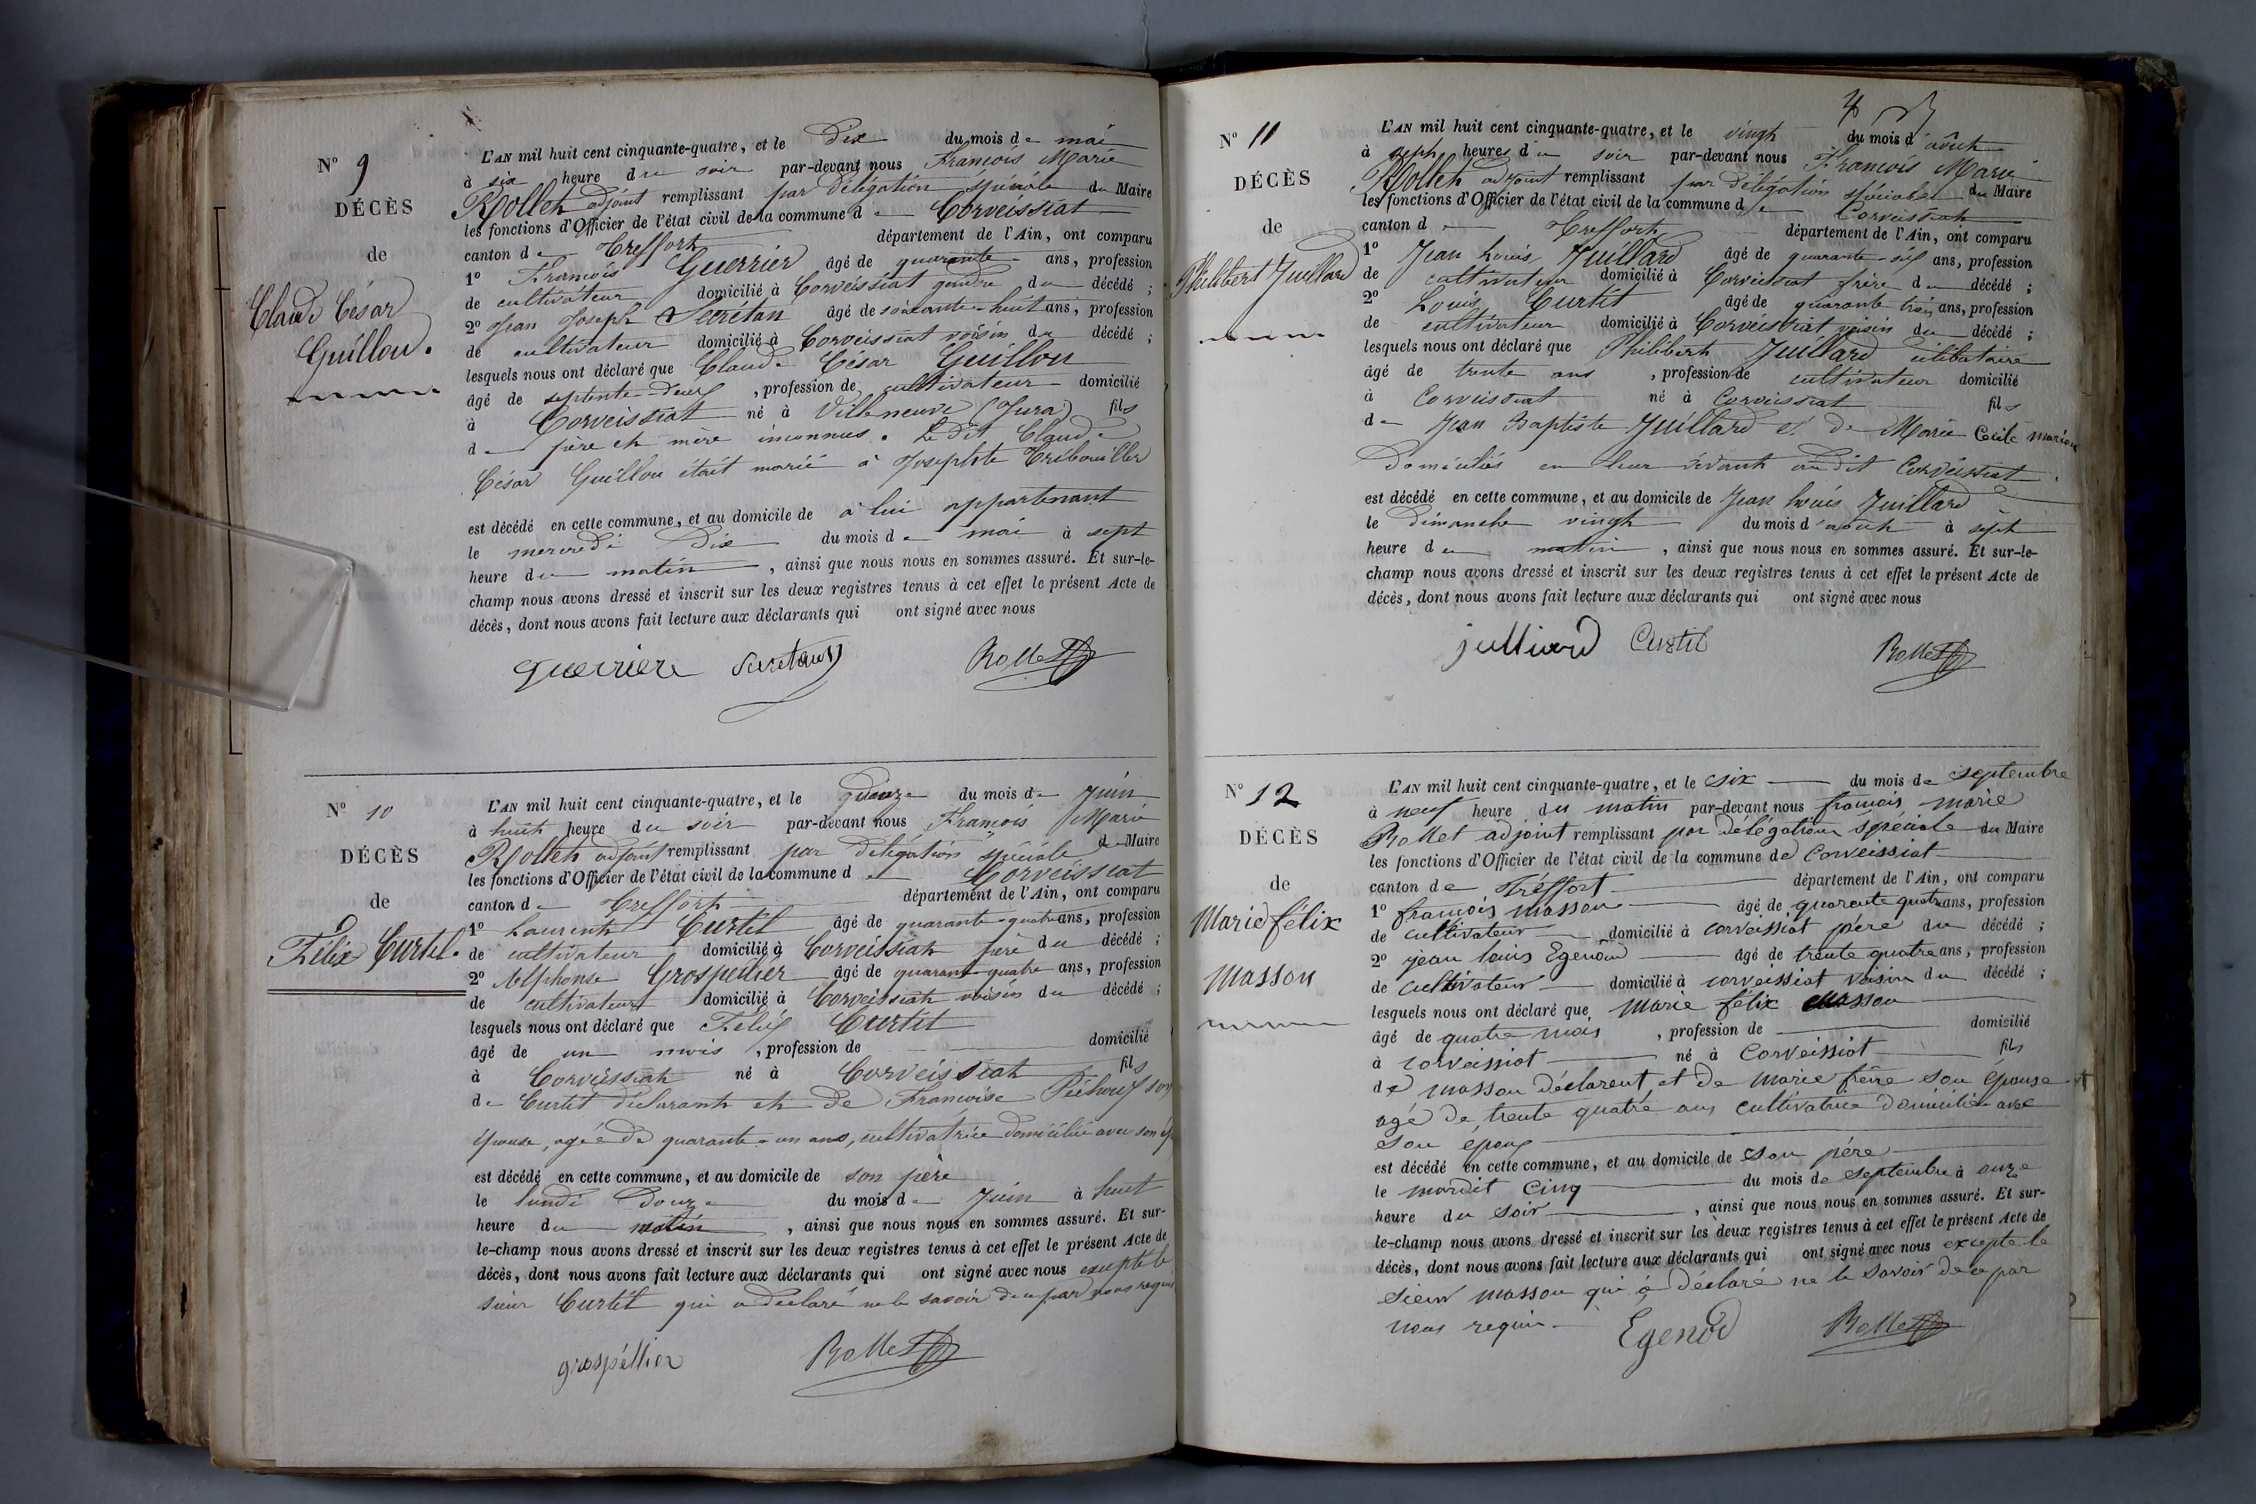 N° 9
DÉCÈS
de
Claude César
Guillou.
L'AN mil huit cent cinquante-quatre, et le dix du mois de mai
à six heure du soir par-devant nous François Marie
Rollet adjoint remplissant par délégation spéciale du Maire
les fonctions d'Officier de l'état civil de la commune de Corveissiat
canton de Treffort département de l'Ain, ont comparu
1° François Guerrier âgé de quarante ans, profession
de cultivateur domicilié à Corveissiat gendre du décédé ;
2° Jean Joseph Secrétan âgé de soixante-huit ans, profession
de cultivateur domicilié à Corveissiat voisin du décédé ;
lesquels nous ont déclaré que Claude César Guillou
âgé de septente-deux , profession de cultivateur domicilié
à Corveissiat né à Villeneuve (Jura) fils
de père et mère inconnus. Le dit Claude
César Guillou était marié à Josephte Tribouiller
est décédé en cette commune, et au domicile de à lui appartenant
le mercredi dix du mois de mai à sept
heure du matin , ainsi que nous nous en sommes assuré. Et sur-le-
champ nous avons dressé et inscrit sur les deux registres tenus à cet effet le présent Acte de
décès, dont nous avons fait lecture aux déclarants qui ont signé avec nous
guerriere Secretan Rollet
N° 10
DÉCÈS
de
Félix Curtil.
L'AN mil huit cent cinquante-quatre, et le du mois de Juin
à huit heure du soir par-devant nous François Marie
Rollet adjoint remplissant par délégation spéciale du Maire
les fonctions d'Officier de l'état civil de la commune de Corveissiat
canton de Treffort département de l'Ain, ont comparu
1° Laurent Curtil âgé de quarante-quatre ans, profession
de cultivateur domicilié à Corveissiat père du décédé ;
2° Alphonse Grospellier âgé de quarante-quatre ans, profession
de cultivateur domicilié à Corveissiat voisin du décédé ;
lesquels nous ont déclaré que Félix Curtil
âgé de un mois , profession de domicilié
à Corveissiat né à Corveissiat fils
de Curtil déclarant et de Françoise son
épouse, agée de quarante-un ans, cultivatrice domiciliée avec son
est décédé en cette commune, et au domicile de son père
le lundi Douze du mois de Juin à huit
heure du matin , ainsi que nous nous en sommes assuré. Et sur-
le-champ nous avons dressé et inscrit sur les deux registres tenus à cet effet le présent Acte de
décès, dont nous avons fait lecture aux déclarants qui ont signé avec nous excepté le
sieur Curtil qui a déclaré ne le savoir de ce par nous requis
grospéllier Rollet
N° 11
DÉCÈS
de
Philibert Juillard
L'AN mil huit cent cinquante-quatre, et le vingt du mois d'août
à sept heures du soir par-devant nous François Marie
Rollet adjoint remplissant par délégation spéciale du Maire
les fonctions d'Officier de l'état civil de la commune de Corveissiat
canton de Treffort département de l'Ain, ont comparu
1° Jean Louis Juillard âgé de quarante-six ans, profession
de cultivateur domicilié à Corveissiat frère du décédé ;
2° Louis Curtil âgé de quarante trois ans, profession
de cultivateur domicilié à Corveissiat voisin du décédé ;
lesquels nous ont déclaré que Philibert Juillard célibataire
âgé de trente ans , profession de cultivateur domicilié
à Corveissiat né à Corveissiat fils
de Jean Baptiste Juillard et de Marie Cécile
Domiciliés en leur vivant au dit Corveissiat
est décédé en cette commune, et au domicile de Jean Louis Juillard
le dimanche vingt du mois d'août à sept
heure du matin , ainsi que nous nous en sommes assuré. Et sur-le-
champ nous avons dressé et inscrit sur les deux registres tenus à cet effet le présent Acte de
décès, dont nous avons fait lecture aux déclarants qui ont signé avec nous
julliard Curtil Rollet
N° 12
DÉCÈS
de
Marie félix
Masson
L'AN mil huit cent cinquante-quatre, et le six du mois de septembre
à neuf heure du matin par-devant nous françois marie
Rollet adjoint remplissant par délégation spéciale du Maire
les fonctions d'Officier de l'état civil de la commune de Corveissiat
canton de Tréffort département de l'Ain, ont comparu
1° françois masson âgé de quarante quatre ans, profession
de cultivateur domicilié à corveissiat péré du décédé ;
2° jean louis Egenod âgé de trente quatre ans, profession
de cultivateur domicilié à corveissiat voisin du décédé ;
lesquels nous ont déclaré que Marie félix Masson
âgé de quatre mois , profession de domicilié
à corveissiat né à Corveissiat fils
de masson déclarent et de Marie frère son épouse
agé de trente quatre ans cultivatrice domiciliée avec
son époux
est décédé en cette commune, et au domicile de son pére
le mardit cinq du mois de septembre à onze
heure du soir , ainsi que nous nous en sommes assuré. Et sur-
le-champ nous avons dressé et inscrit sur les deux registres tenus à cet effet le présent Acte de
décès, dont nous avons fait lecture aux déclarants qui ont signé avec nous excepte le
sieur masson qui a déclaré ne le savoir de ce par
nous requis
Egenod Rollet